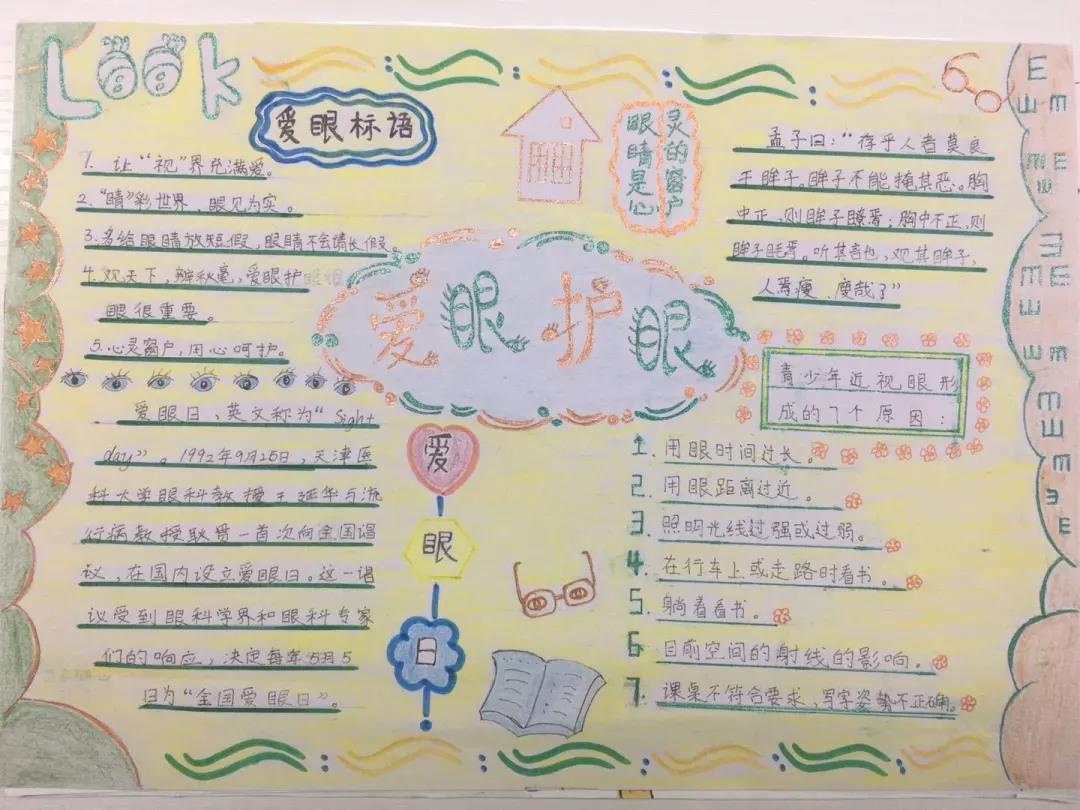 Look
爱眼标语
1. 让“视”界充满爱。
2. “睛”彩世界，眼见为实。
3. 多给眼睛放短假，眼睛不会请长假。
4. 观天下，辨秋毫，爱眼护
眼很重要。
5. 心灵窗户，用心呵护。
爱眼日，英文称为“Sight
day”。1992年9月25日，天津医
科大学眼科教授王延华与流
行病教授耿贯一首次向全国倡
议，在国内设立爱眼日。这一倡
议受到眼科学界和眼科专家
们的响应，决定每年5月5
日为“全国爱眼日”。
眼睛是心
灵的窗户
爱眼护眼
爱
眼
日
孟子曰：“存乎人者莫良
于眸子。眸子不能掩其恶。胸
中正，则眸子瞭焉；胸中不正，则
眸子眊焉。听其言也，观其眸子，
人焉瘦、廋哉了”
青少年近视眼形
成的7个原因：
1. 用眼时间过长。
2. 用眼距离过近。
3. 照明光线过强或过弱。
4. 在行车上或走路时看书。
5. 躺着看书。
6 目前空间的射线的影响。
7. 课桌不符合要求，写字姿势不正确。
E
E
E
E
E
E
E
E
E
E
E
E
E
E